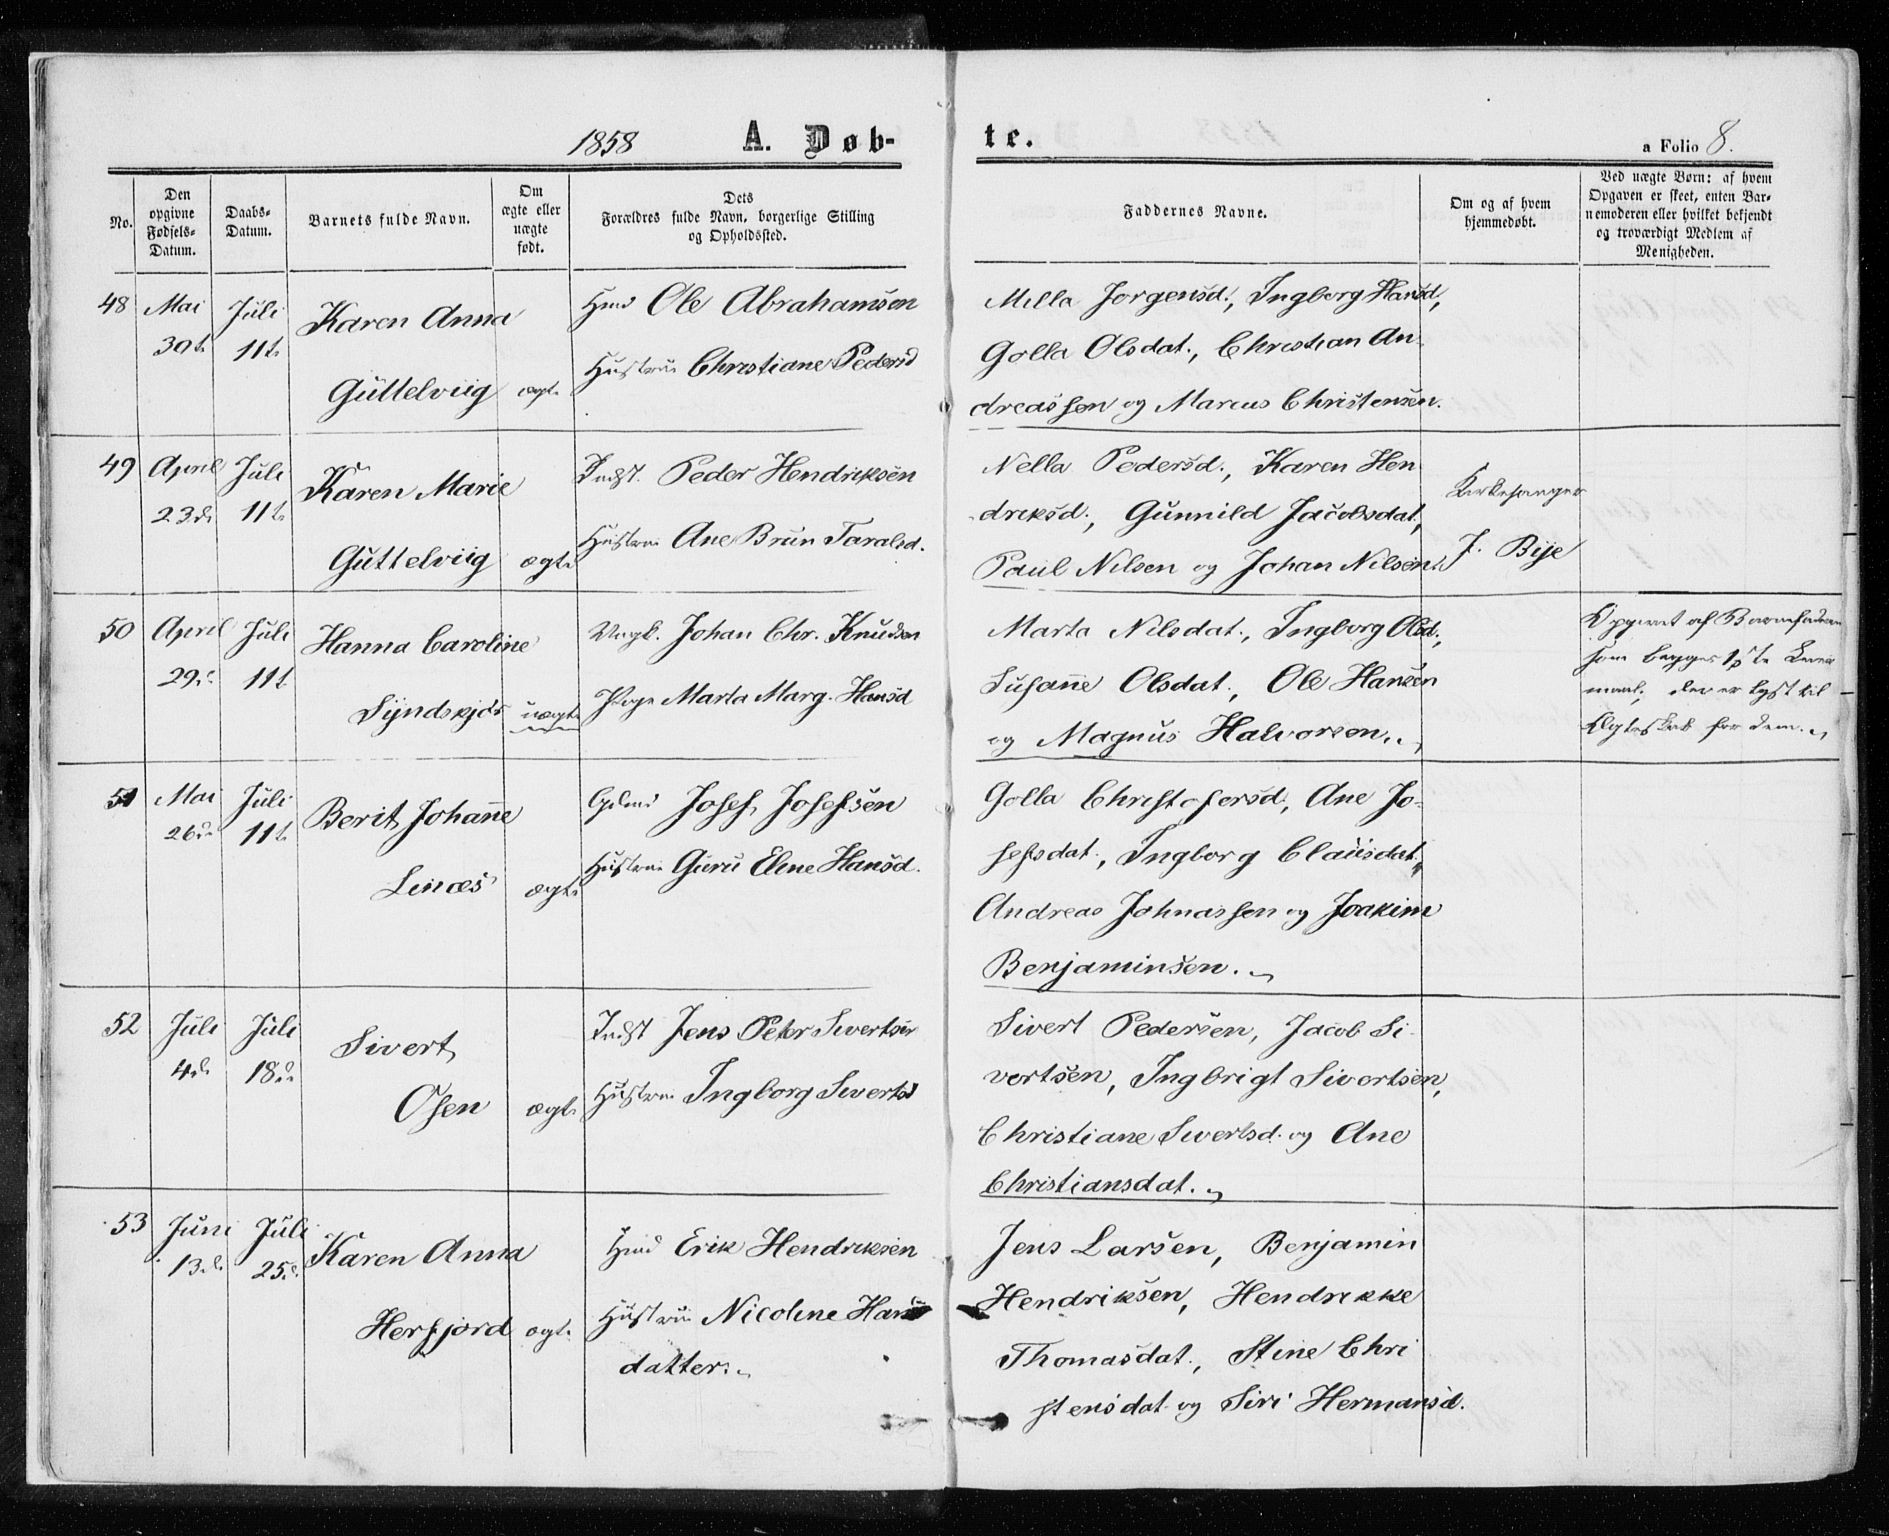 1858 A. Døb-
te. a Folio 8.
No.
Den opgivne Fødsels-Datum.
Daabs-Datum.
Barnets fulde Navn.
Om ægte eller uægte født.
Dets Forældres fulde Navn, borgerlige Stilling og Opholdssted.
Faddernes Navne.
Om og af hvem hjemmedøbt.
Ved uægte Børn: af hvem Opgaven er skeet, enten Barnemoderen eller hvilket bekjendt og troværdigt Medlem af Menigheden.
48 Mai 30te Juli 11te
Karen Anna
Guttelviig ægte
Hmd Ole Abrahamsen
Hustrue Christiane Pedersd
Mella Jørgensd., Ingborg Hansd,
Golla Olsdat., Christian An-
dreassen og Marcus Christensen.
49 April 23de Juli 11te
Karen Marie
Guttelviig ægte
Indst. Peder Hendriksen
Hustrue Ane Brun Taralsd.
Nella Pedersd., Karen Hen
driksd., Gunnild Jacobsdat,
Paul Nilsen og Johan Nilsen.
Kirkesanger
J. Bye
50 April 29de Juli 11te
Hanna Caroline
Syndskjør uægte
Ungk. Johan Chr. Knudsen
Pige Marta Marg. Hansd
Marta Nilsdat., Ingborg Olsd.,
Susanne Olsdat., Ole Hansen
og Magnus Halvorsen.
Opgivet af Barnefaderen
som begges 1ste Leier
maal; der er lyst til
Ægteskab for dem.
51 Mai 26de Juli 11te
Berit Johanne
Linæs ægte
Gdmd Josef Josefsen
Hustrue Guru Eline Hansd.
Golla Christofersd, Ane Jo-
sefsdat., Ingborg Clausdat.,
Andreas Johnassen og Joakim
Benjaminsen.
52 Juli 4de Juli 18de
Sivert
Osen ægte
Indst Jens Peter Sivertsen
Hustrue Ingborg Sivertsd
Sivert Pedersen, Jacob Si
vertsen, Ingbrigt Sivertsen,
Christiane Sivertsd. og Ane
Christiansdat.
53 Juni 13de Juli 25de
Karen Anna
Herfjord ægte
Hmd Erik Hendriksen
Hustrue Nicoline Hans
datter.
Jens Larsen, Benjamin
Hendriksen, Hendrikke
Thomasdat., Stine Chri
stensdat og Siri Hermansd.